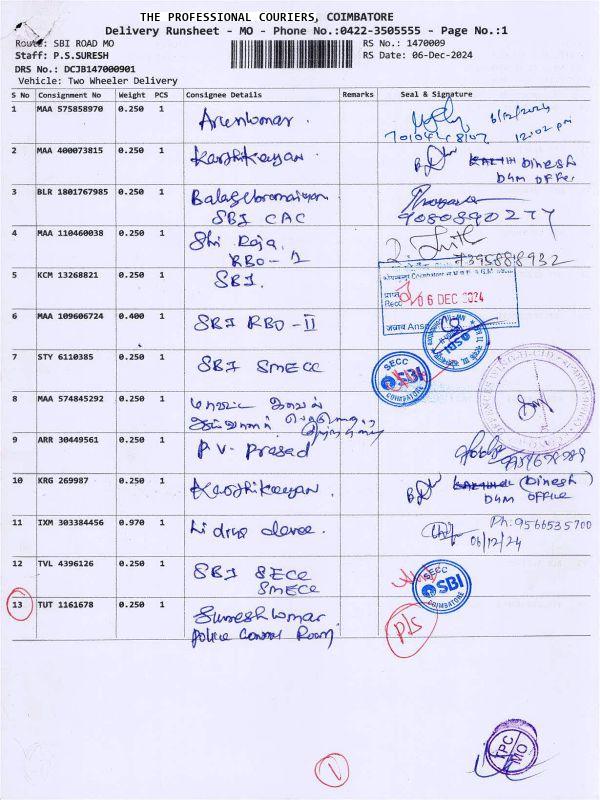 THE PROFESSIONAL COURIERS, COIMBATORE
Delivery Runsheet - MO - Phone No.:0422-3505555 - Page No.:1
Route: SBI ROAD MO
RS No.: 1470009
Staff: P.S.SURESH
RS Date: 06-Dec-2024
DRS No.: DCJB147000901
Vehicle: Two Wheeler Delivery
S No Consignment No Weight PCS Consignee Details Remarks Seal & Signature
1 MAA 575858970 0.250 1 Arunkumar. 6/12/2024
12:02 pm
2 MAA 400073815 0.250 1 Karthikeyan Dinesh
DGM OFFice
3 BLR 1801767985 0.250 1 Balasubramaniyan
SBI CAC 9080890277
4 MAA 110460038 0.250 1 Sri Raja.
RBO-1 7395888932
5 KCM 13268821 0.250 1 SBI.
06 DEC 2024
6 MAA 109606724 0.400 1 SBI RBO-II
SBI
7 STY 6110385 0.250 1 SBI SMECC
SECC
SBI
COIMBATORE
8 MAA 574845292 0.250 1
9 ARR 30449561 0.250 1 P.V. Prasad
10 KRG 269987 0.250 1 Karthikeyan. (Dinesh)
DGM OFFICE
11 IXM 303384456 0.970 1 Ph:9566535700
06/12/24
12 TVL 4396126 0.250 1 SBI SECC
SMECC
SECC
SBI
COIMBATORE
13 TUT 1161678 0.250 1 Sureshkumar
Police Control Room
P/S
TPC
MO
1